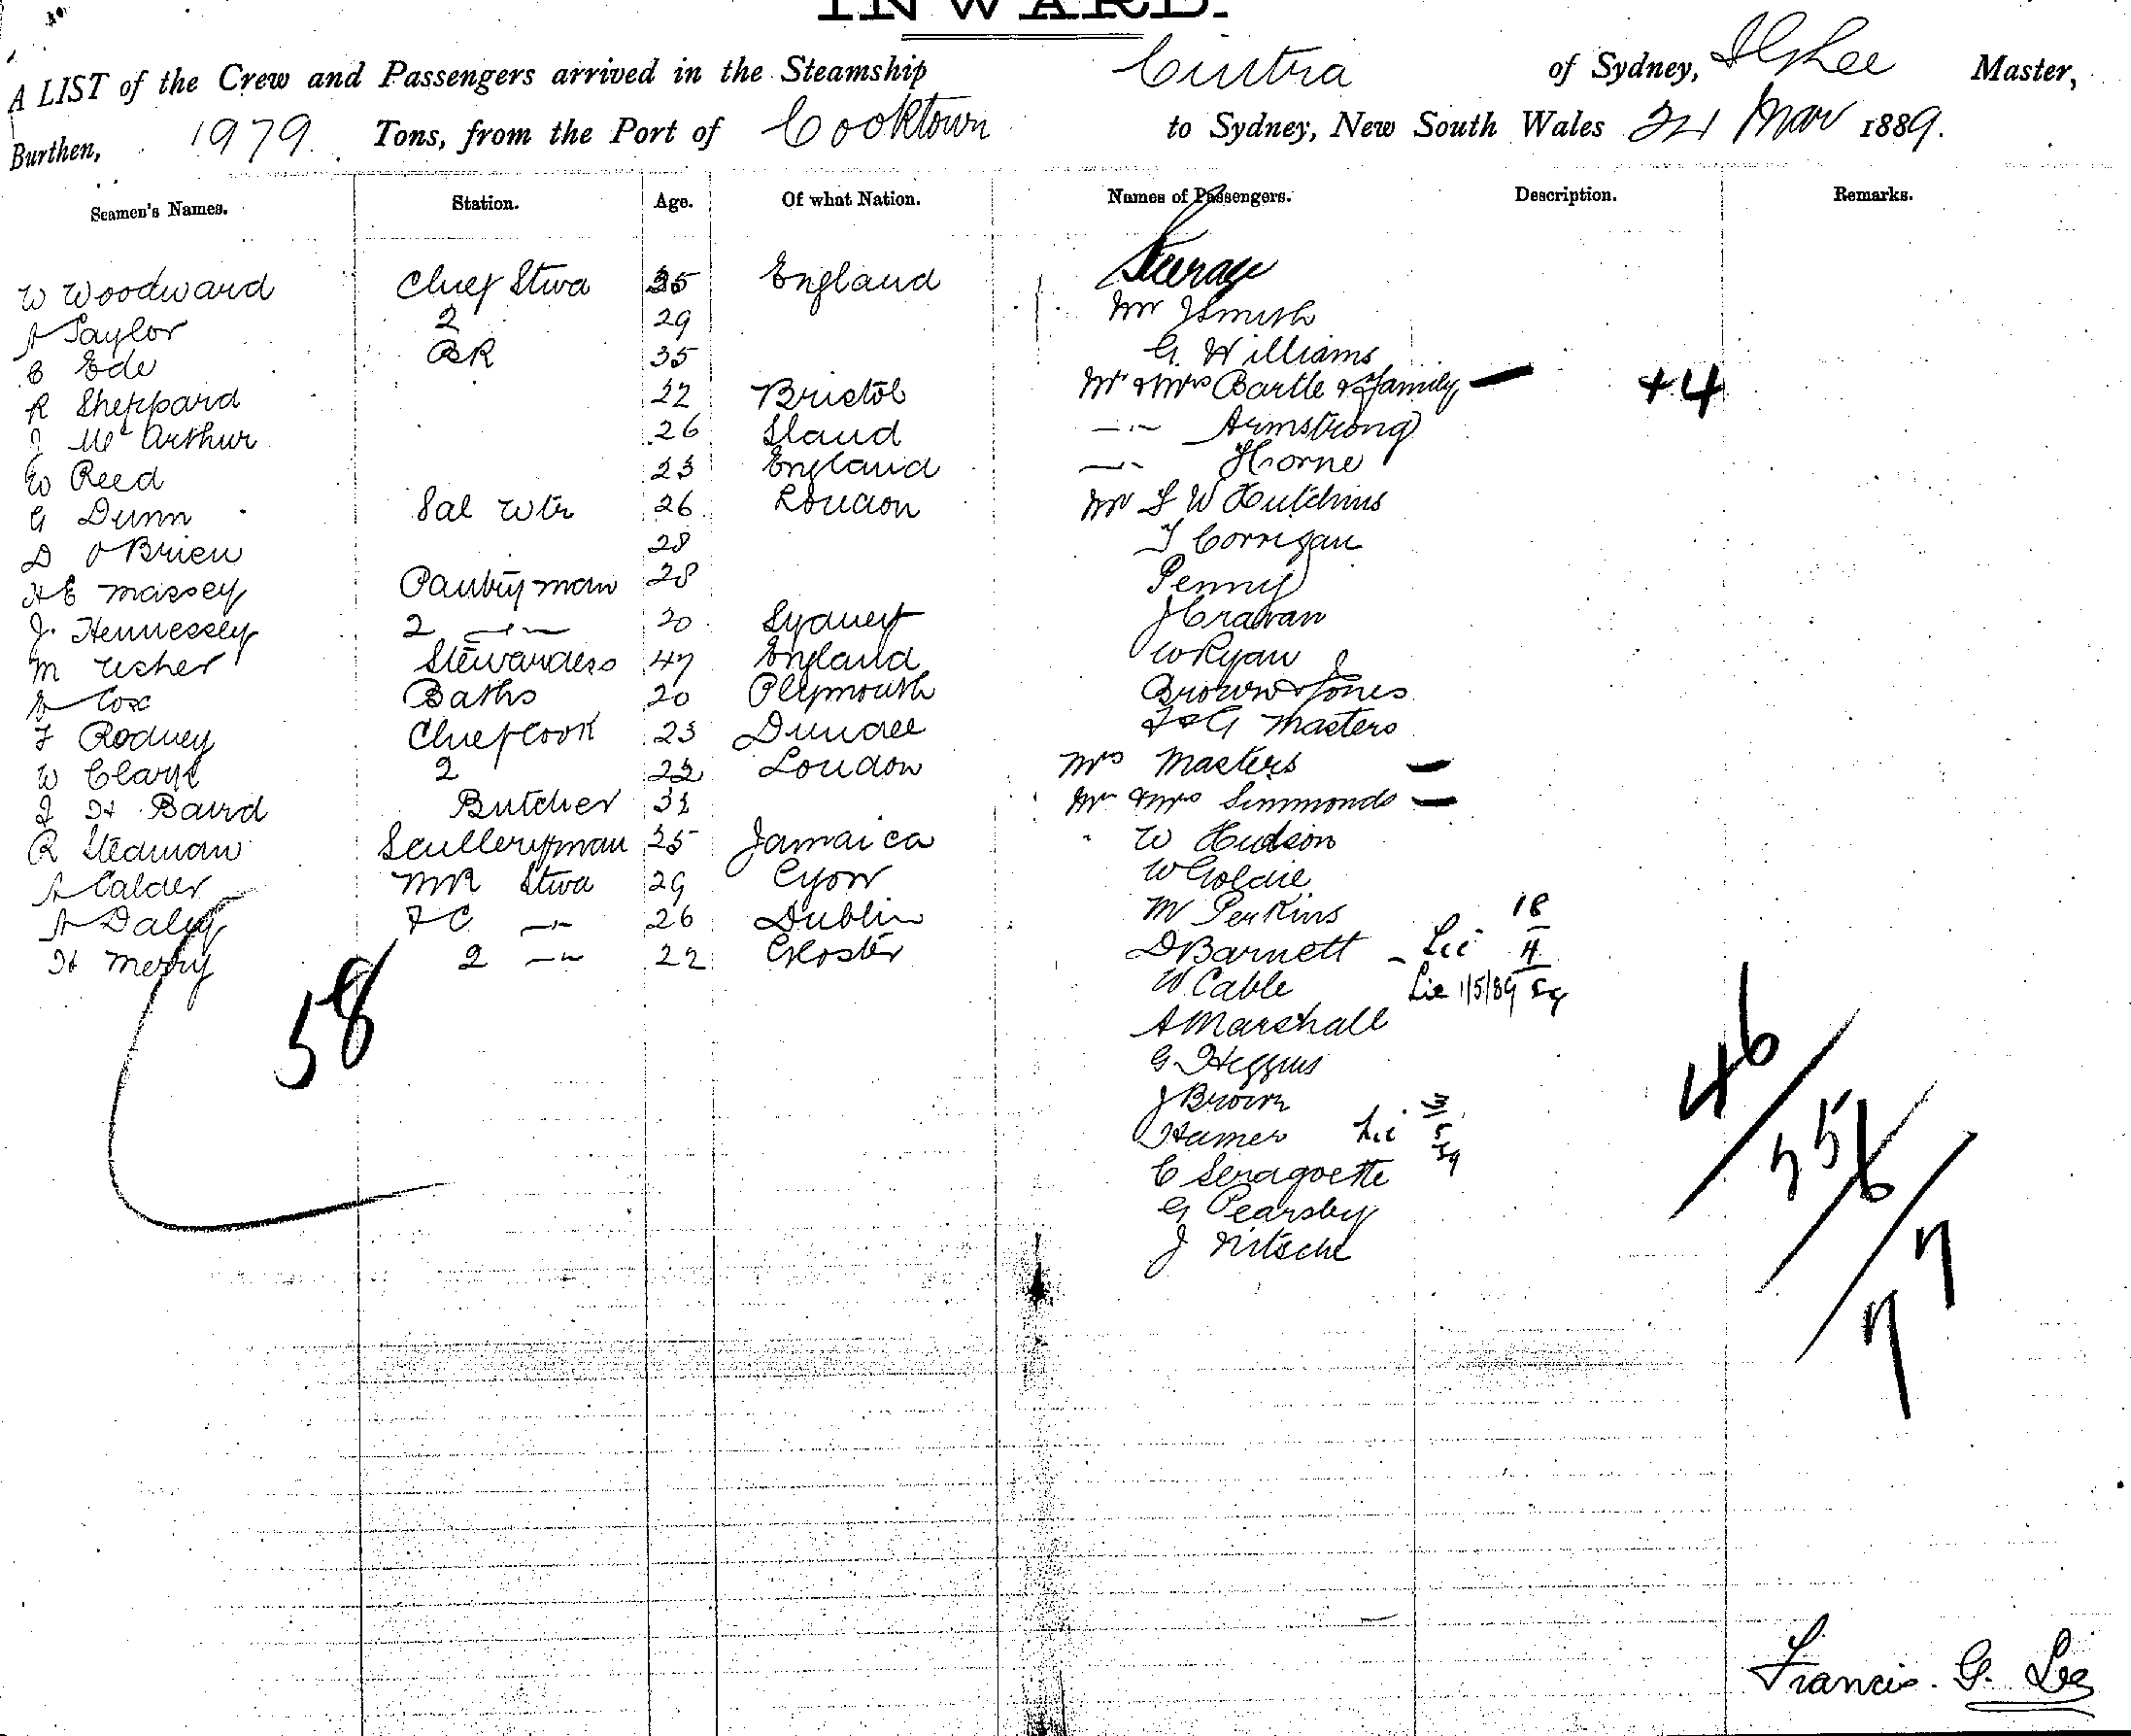 INWARD.
A LIST of the Crew and Passengers arrived in the Steamship Cintra of Sydney, F G Lee Master,
Burthen, 1979 Tons, from the Port of Cooktown to Sydney, New South Wales 24 Mar 1889.
Seamen's Names. Station. Age. Of what Nation. Names of Passengers. Description. Remarks.
Steerage
W Woodward Chief Stwd 35 England
Mr J Smith
A Taylor 2 29
G. Williams
C Ede BR 35
Mr & Mrs Bartle & family — +4
R Sheppard 22 Bristol
—"— Armstrong
J McArthur 26 Sland
—"— Horne
W Reed 23 England
Mr F W Hutchins
G Dunn Sal Wtr 26 London
T Corrigan
D O'Brien 28
Penny
H E Massey Pantryman 28
J Cravan
J. Hennessey 2 —"— 20 Sydney
W Ryan
M Usher Stewardess 47 England
Brown & Jones
Cox Baths 20 Plymouth
F & G Masters
F Rodney Chief Cook 23 Dundee
Mrs Masters —
W Clark 2 22 London
Mr & Mrs Simmonds —
J H Baird Butcher 31
W Hudson
R Stedman Sculleryman 25 Jamaica
W Goldie
A Calder MR Stwd 29 Lyon
M Perkins
A Daley FC —"— 26 Dublin
D Barnett - Lic 18 4
H Merry 2 —"— 22 Gloster
W. Cable Lic 1/5/89
58
A Marshall
G Heggins
J Brown
Hamer Lic 3 5 89
C Seragoette
G Pearsby
J Nitsche
46
56
77
Francis. G. Lee